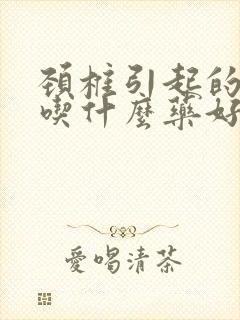 頚椎引起的
喫什麼藥好
愛喝清茶